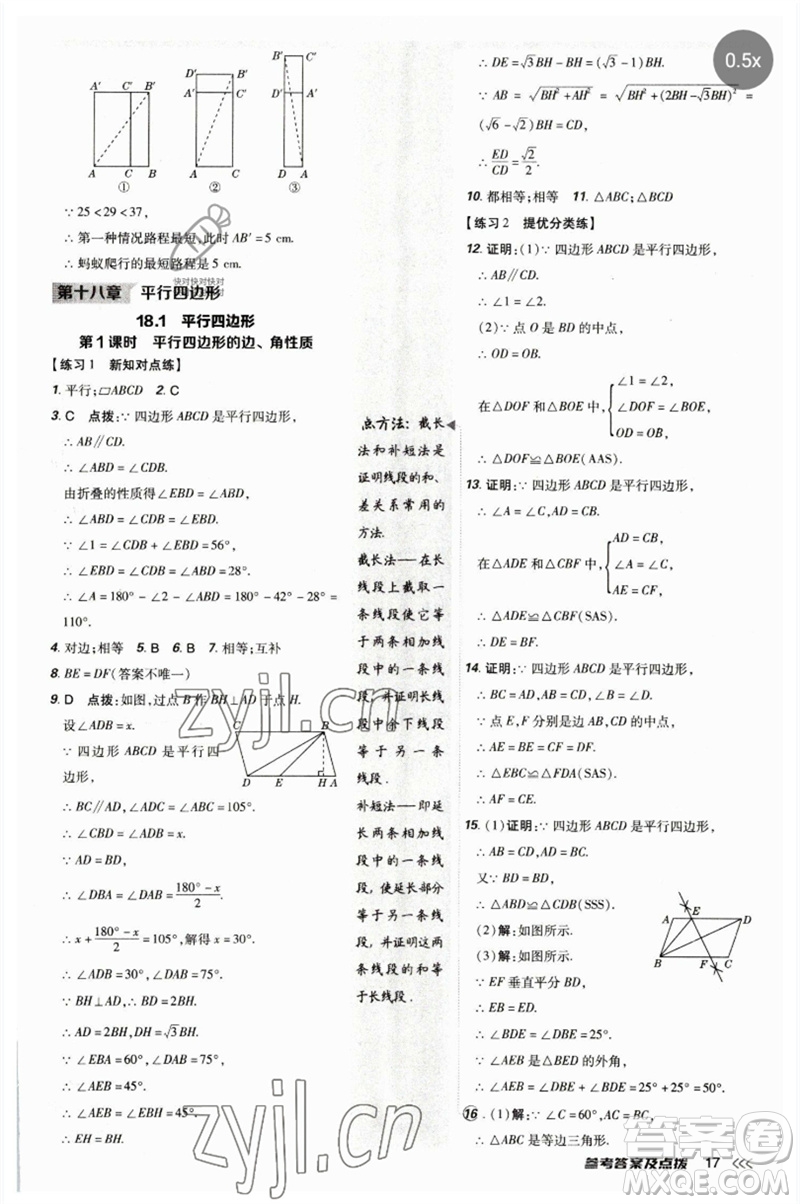 A' C' B'
A C B
①
D' B'
A' C'
A C
②
B' C'
D' A'
D A
③
∵ 25<29<37,
∴ 第一种情况路程最短,此时 AB'=5 cm.
∴ 蚂蚁爬行的最短路程是 5 cm.
快对快对快对
第十八章 平行四边形
18.1 平行四边形
第1课时 平行四边形的边、角性质
【练习1 新知对点练】
1. 平行;▱ABCD 2. C
3. C 点拨:∵ 四边形 ABCD 是平行四边形,
∴ AB∥CD.
∴ ∠ABD=∠CDB.
由折叠的性质得∠EBD=∠ABD,
∴ ∠EBD=∠CDB.
∵ ∠1=∠CDB+∠EBD=56°,
∴ ∠EBD=∠ABD=28°.
∴ ∠A=180°-∠2-∠ABD=180°-42°-28°=
110°.
4. 对边;相等 5. B 6. B 7. 相等;互补
8. BE=DF(答案不唯一)
9. D 点拨:如图,过点 B 作 BH⊥AD 于点 H.
设∠ADB=x.
∵ 四边形 ABCD 是平行四
边形,
∴ BC∥AD,∠ADC=∠ABC=105°.
C B
D E H A
∴ ∠CBD=∠ADB=x.
∵ AD=BD,
∴ ∠DBA=∠DAB=(180°-x)/2.
∴ x+(180°-x)/2=105°,解得 x=30°.
∴ ∠ADB=30°,∠DAB=75°.
∵ BH⊥AD,∴ BD=2BH.
∴ AD=2BH,DH=√3BH.
∵ ∠EBA=60°,∠DAB=75°,
∴ ∠AEB=45°.
∴ ∠AEB=∠EBH=45°.
∴ EH=BH.
点方法:截长
法和补短法是
证明线段的和、
差关系常用的
方法.
截长法——在长
线段上截取一
条线段使它等
于两条相加线
段中的一条线
段,并证明线段
中余下线段
等于另一条
线段.
补短法——即延
长两条相加线
段中的一条线
段,使延长部分
等于另一条线
段,并证明这两
条线段的和等
于长线段.
∴ DE=√3BH-BH=(√3-1)BH.
∵ AB=√(BH²+AH²)=√(BH²+(2BH-√3BH)²)=
(√6-√2)BH=CD,
∴ ED/CD=√2/2.
10. 都相等;相等 11. △ABC;△BCD
【练习2 提优分类练】
12. 证明:(1)∵ 四边形 ABCD 是平行四边形,
∴ AB∥CD.
∴ ∠1=∠2.
(2)∵ 点 O 是 BD 的中点,
∴ OD=OB.
在△DOF 和△BOE 中,{∠1=∠2,
∠DOF=∠BOE,
OD=OB,
∴ △DOF≌△BOE(AAS).
13. 证明:∵ 四边形 ABCD 是平行四边形,
∴ ∠A=∠C,AD=CB.
在△ADE 和△CBF 中,{AD=CB,
∠A=∠C,
AE=CF,
∴ △ADE≌△CBF(SAS).
∴ DE=BF.
14. 证明:∵ 四边形 ABCD 是平行四边形,
∴ BC=AD,∠A=∠EBC.
∵ 点 E,F 分别是边 AB,AD 的中点,
∴ AE=BE=AF=DF.
∴ △EBC≌△FDA(SAS).
∴ AF=CE.
15. (1)证明:∵ 四边形 ABCD 是平行四边形,
∴ AB=CD,AD=BC.
又∵ BD=DB,
∴ △ABD≌△CDB(SSS).
(2)解:如图所示.
(3)解:如图所示.
∵ EF 垂直平分 BD,
∴ EB=ED.
A E D
B F C
∴ ∠BDE=∠DBE=25°.
∵ ∠AEB 是△BED 的外角,
∴ ∠AEB=∠DBE+∠BDE=25°+25°=50°.
16. (1)解:∵ ∠C=60°,AC=BC,
∴ △ABC 是等边三角形.
参考答案及点拨 17
0.5x
zyjl.cn
zyjl.cn
答案圈
MXQE.COM